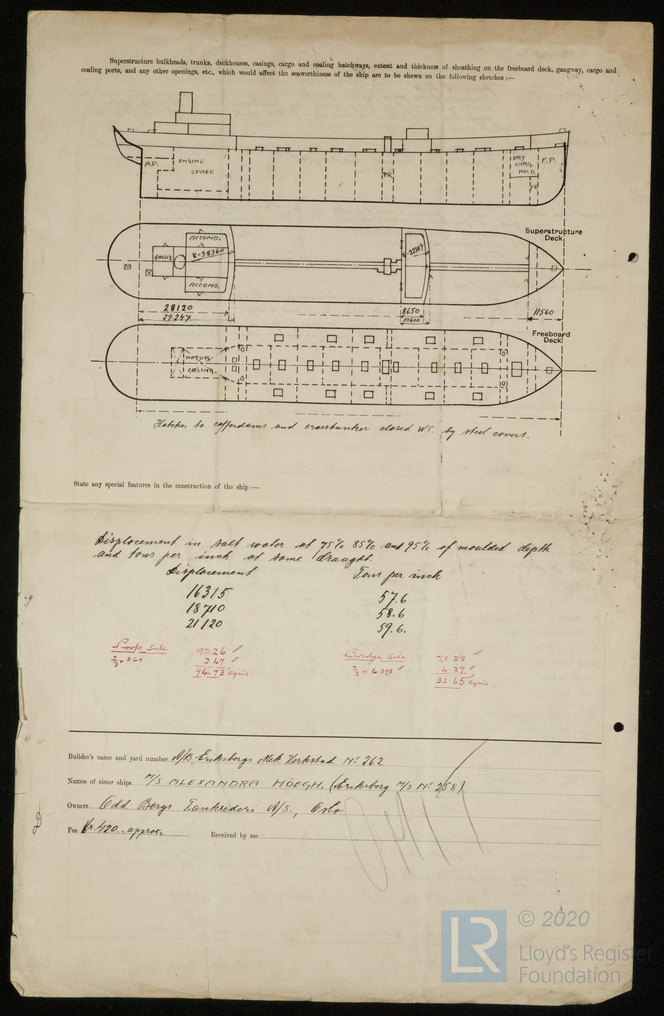 Superstructure bulkheads, trunks, deckhouses, casings, cargo and coaling hatchways, extent and thickness of sheathing on the freeboard deck, gangway, cargo and
coaling ports, and any other openings, etc., which would affect the seaworthiness of the ship are to be shewn on the following sketches :—
A.P. ENGINE SPACE P.R. DRY CARGO HOLD F.P.
Superstructure Deck
ACCOMD.
GALLEY R-38360
ACCOMD.
28120 8650 11560
29247 10600
Freeboard Deck
MOTOR CASING
Hatches to cofferdams and crossbunker closed W.T. by steel covers.
State any special features in the construction of the ship :—
Displacement in salt water at 75% 85% and 95% of moulded depth
and tons per inch at same draught.
Displacement Tons per inch
16315 57.6
18710 58.6
21120 59.6.
Poop side 92.26 Bridge side
2/3 × 3.67 2.47 4.27
94.73 equiv 32.65 equiv
Builder's name and yard number A/B Eriksbergs Mek Verkstad No 262
Names of sister ships M/S ALEXANDRA HÖEGH. (Eriksberg M/S No 258)
Owners Odd Bergs Tankrederi A/S., Oslo
Fee Kr. 420 approx. Received by me
LR © 2020
Lloyd's Register
Foundation